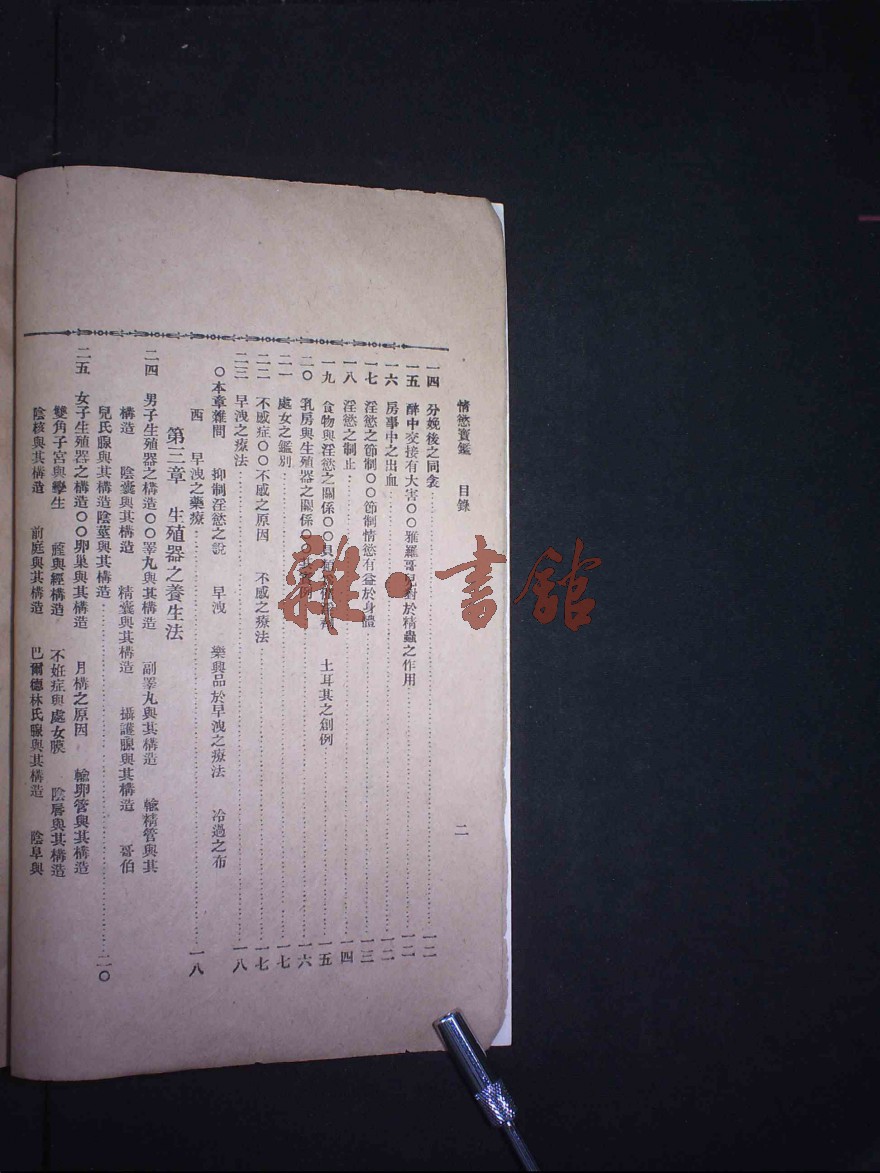 情慾寶鑑　目錄　二
一四　分娩後之同衾……一二
一五　醉中交接有大害〇〇雅羅哥兒對於精蟲之作用……一二
一六　房事中之出血……一二
一七　淫慾之節制〇〇節制情慾有益於身體……一三
一八　淫慾之制止……一四
一九　食物與淫慾之關係　土耳其之創例……一五
二〇　乳房與生殖器之關係〇〇其例……一六
二一　處女之鑑別……一七
二二　不感症〇〇不感之原因　不感之療法……一七
二三　早洩之療法……一八
〇本章雜問　抑制淫慾之說　早洩　樂興品於早洩之療法　冷過之布
西　早洩之藥療……一八
第三章　生殖器之養生法
二四　男子生殖器之構造〇〇睪丸與其構造　副睪丸與其構造　輸精管與其
構造　陰囊與其構造　精囊與其構造　攝護腺與其構造　哥伯
兒氏腺與其構造陰莖與其構造……二〇
二五　女子生殖器之構造〇〇卵巢與其構造　月構之原因　輸卵管與其構造
雙角子宮與孿生　膣與經構造　不妊症與處女膜　陰唇與其構造
陰核與其構造　前庭與其構造　巴爾德林氏腺與其構造　陰阜與
雜·書館